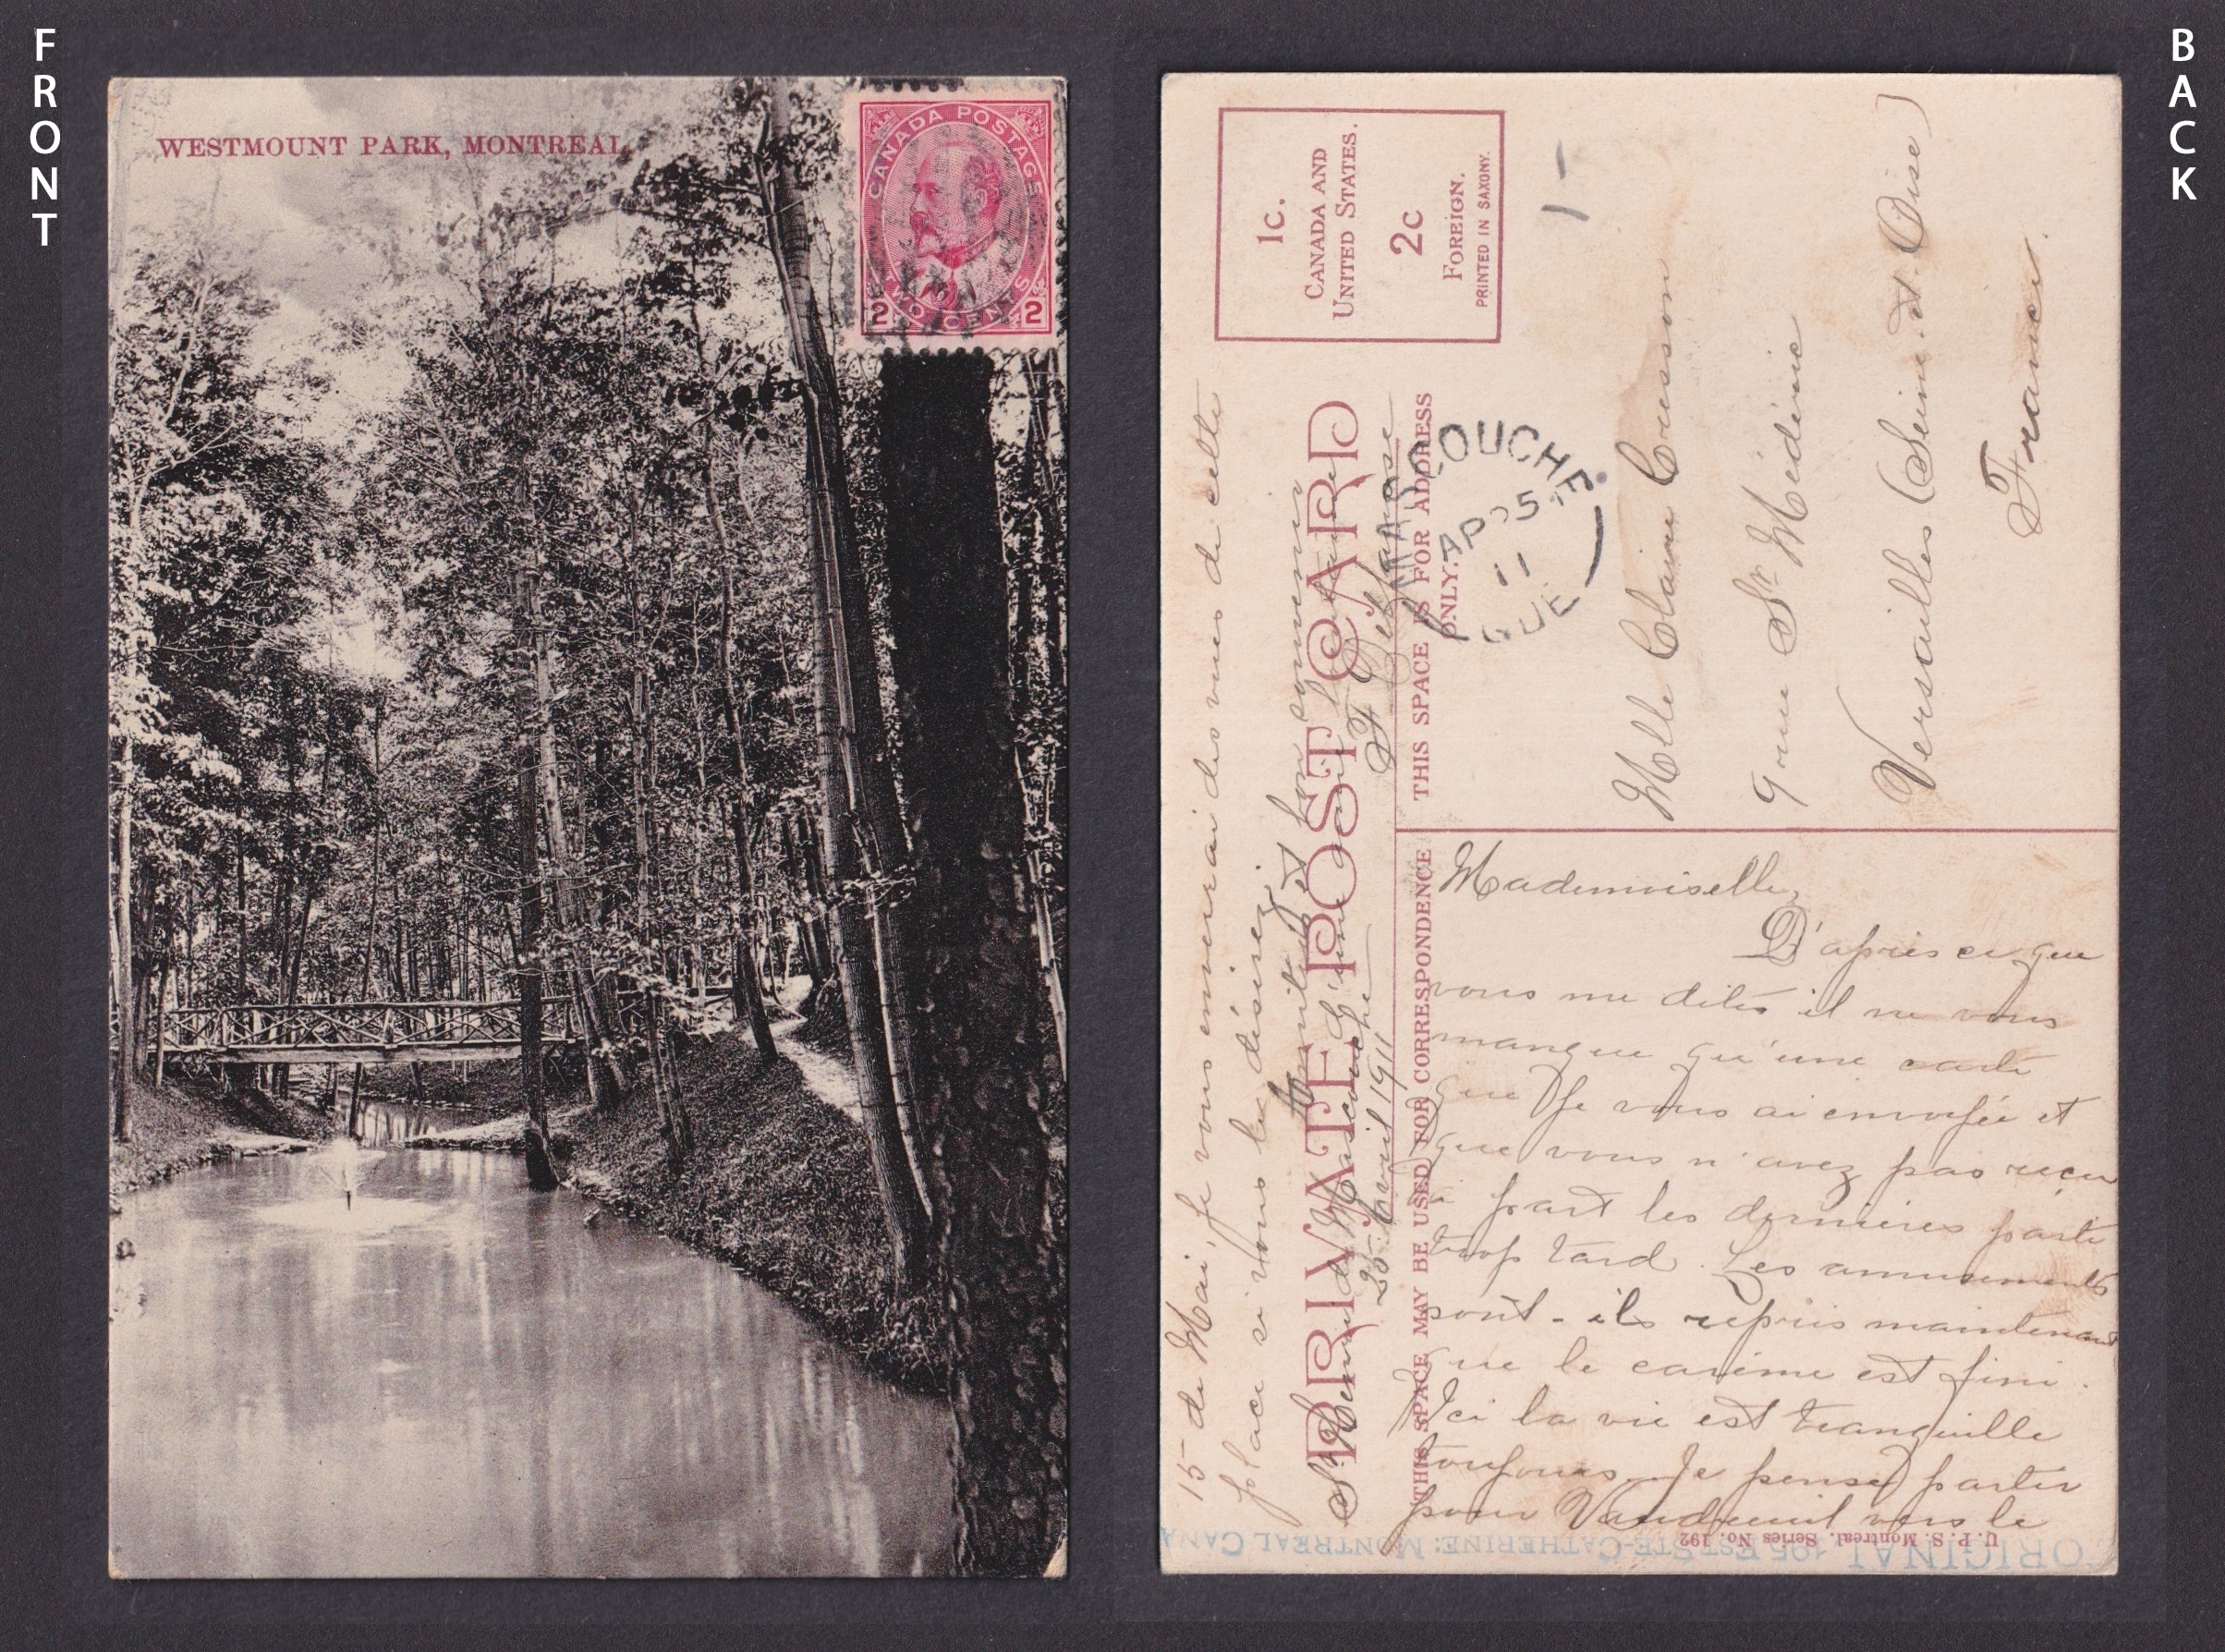 FRONT
WESTMOUNT PARK, MONTREAL
CANADA POSTAGE
TWO CENTS
2 2
BACK
1c.
CANADA AND
UNITED STATES.
2c
FOREIGN.
PRINTED IN SAXONY.
PRIVATE POST CARD
THIS SPACE MAY BE USED FOR CORRESPONDENCE
THIS SPACE IS FOR ADDRESS
ONLY.
MASCOUCHE
AP 25
11
QUE
Mlle Claire Cuesson
9 rue St Médéric
Versailles (Seine et Oise)
France.
Mademoiselle,
D'après ce que
vous me dites il ne vous
manque qu'une carte
que je vous ai envoyée et
que vous n'avez pas reçu
à part les dernières parti
trop tard. Les amusements
sont-ils repris maintenant
que le carême est fini.
Ici la vie est tranquille
toujours. Je pense partir
pour Vaudreuil vers le
15 de Mai, je vous enverrai des vues de cette
place si vous le désirez.
Amitiés et bon souvenir
St Henri de Mascouche
25 Avril 1911
U. P. S. Montreal. Series No. 192
ORIGINAL 195 EST STE-CATHERINE: MONTREAL CANA